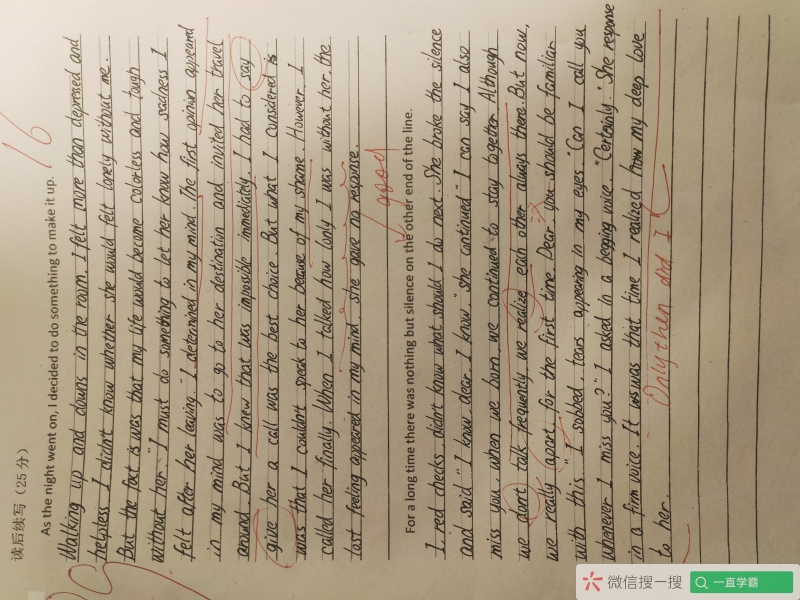 读后续写（25 分）
16
As the night went on, I decided to do something to make it up.
Walking up and downs in the room, I felt more than depressed and
helpless. I didn't know whether she would felt lonely without me.
But the fact is was that my life would become colorless and tough
without her. "I must do something to let her know how sadness I
felt after her leaving." I determined in my mind. The first opinion appeared
in my mind was to go to her destination and invited her travel
around. But I knew that was imposible immediately. I had to say
give her a call was the best choice. But what I considered is
was that I couldn't speak to her because of my shame. However, I
called her finally. When I talked how lonly I was without her, the
lost feeling appeared in my mind, she gave no response.
good
For a long time there was nothing but silence on the other end of the line.
I, red checks didn't know what should I do next. She broke the silence
and said "I know, dear. I know" she continued "I can say I also
miss you, when we born, we continued to stay together. Although
we don't talk frequently we realize each other always there. But now,
we really apart for the first time. Dear, you should be familiar
with this." I sobbed, tears appearing in my eyes. "Can I call you
whenever I miss you?" I asked in a begging voice. "Certainly." She response
in a firm voice. It was that time I realized how my deep love
to her.
Only then did I
微信搜一搜
一直学霸